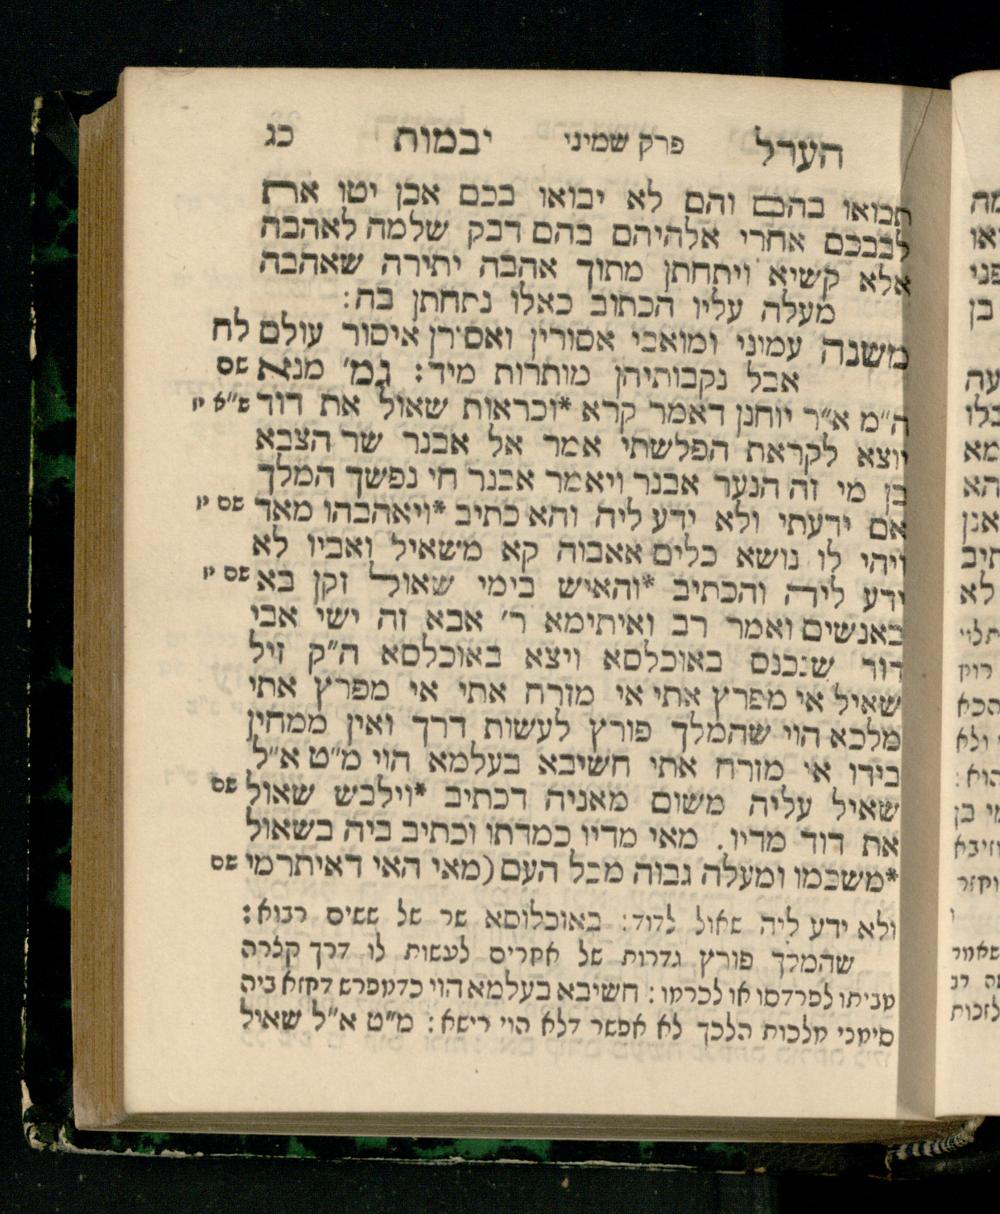 הערל פרק שמיני יבמות כג
תבואו בהכם והם לא יבואו בכם אכן יטו את
לבבכם אחרי אלהיהם בהם דבק שלמה לאהבה
אלא קשיא ויתחתן מתוך אהבה יתירה שאהבה
מעלה עליו הכתוב כאלו נתחתן בה:
משנה עמוני ומואבי אסורין ואסורן איסור עולם לח
אבל נקבותיהן מותרות מיד: גמ' מנא שם
ה"מ א"ר יוחנן דאמר קרא *וכראות שאול את דוד ש"א יז
יוצא לקראת הפלשתי אמר אל אבנר שר הצבא
בן מי זה הנער אבנר ויאמר אבנר חי נפשך המלך
אם ידעתי ולא ידע ליה והא כתיב *ויאהבהו מאד שם יז
ויהי לו נושא כלים אאבוה קא משאיל ואביו לא
ידע ליה והכתיב *והאיש בימי שאול זקן בא שם יז
באנשים ואמר רב ואיתימא ר' אבא זה ישי אבי
דוד שנכנס באוכלסא ויצא באוכלסא ה"ק זיל
שאיל אי מפרץ אתי אי מזרח אתי אי מפרץ אתי
מלכא הוי שהמלך פורץ לעשות דרך ואין ממחין
בידו אי מזרח אתי חשיבא בעלמא הוי מ"ט א"ל
שאיל עליה משום מאניה דכתיב *וילבש שאול שם
את דוד מדיו. מאי מדיו כמדתו וכתיב ביה בשאול
*משכמו ומעלה גבוה מכל העם (מאי האי דאיתרמי שם
ולא ידע ליה שאול לדוד: באוכלוסא שר של ששים רבוא:
שהמלך פורץ גדרות של אחרים לעשות לו דרך קצרה
מביתו לפרדסו או לכרמו: חשיבא בעלמא הוי כדמפרש דקזא ביה
סימני מלכות הלכך לא אפשר דלא הוי רישא: מ"ט א"ל שאיל